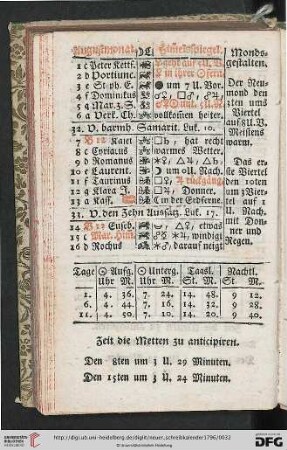 Augustmonat. Himelsspiegel.
Monds-
gestalten.
1 c Peter Kettf.
2 d Portiunc.
3 e Steph. E. um 7 U. Vor.
4 f Dominikus
5 g Mar. z. S.
6 a Verk. Ch. vollkomen heiter.
32. V. barmh. Samarit. Luk. 10.
7 Kajet. hat recht
8 c Cyriacus warmes Wetter.
9 d Romanus
10 e Laurent. um 0 U. Nach.
11 f Taurinus
12 g Klara J. Donner.
13 a Kass. in der Erdferne.
33. V. den Zehn Aussätz. Luk. 17.
14 Euseb. etwas
15 c Mar. Him. windig
16 d Rochus darauf neigt
Der Neu-
mond den
3ten ums
Viertel
auf 8 U. V.
Meistens
warm.
Das er-
ste Viertel
den 10ten
um 3 Vier-
tel auf 1
U. Nach.
mit Don-
ner und
Regen.
Tage Aufg. Unterg. Tagsl. Nachtl.
Uhr M. Uhr M. St. M. St. M.
1. 4. 36. 7. 24. 14. 48. 9 12.
6. 4. 44. 7. 16. 14. 32. 9 28.
11. 4. 50. 7. 10. 14. 20. 9 40.
Zeit die Metten zu anticipiren.
Den 8ten um 3 U. 29 Minuten.
Den 15ten um 3 U. 24 Minuten.
UNIVERSITÄTS-
BIBLIOTHEK
HEIDELBERG
http://digi.ub.uni-heidelberg.de/diglit/neuer_schreibkalender1796/0032
© Universitätsbibliothek Heidelberg
gefördert durch die
DFG